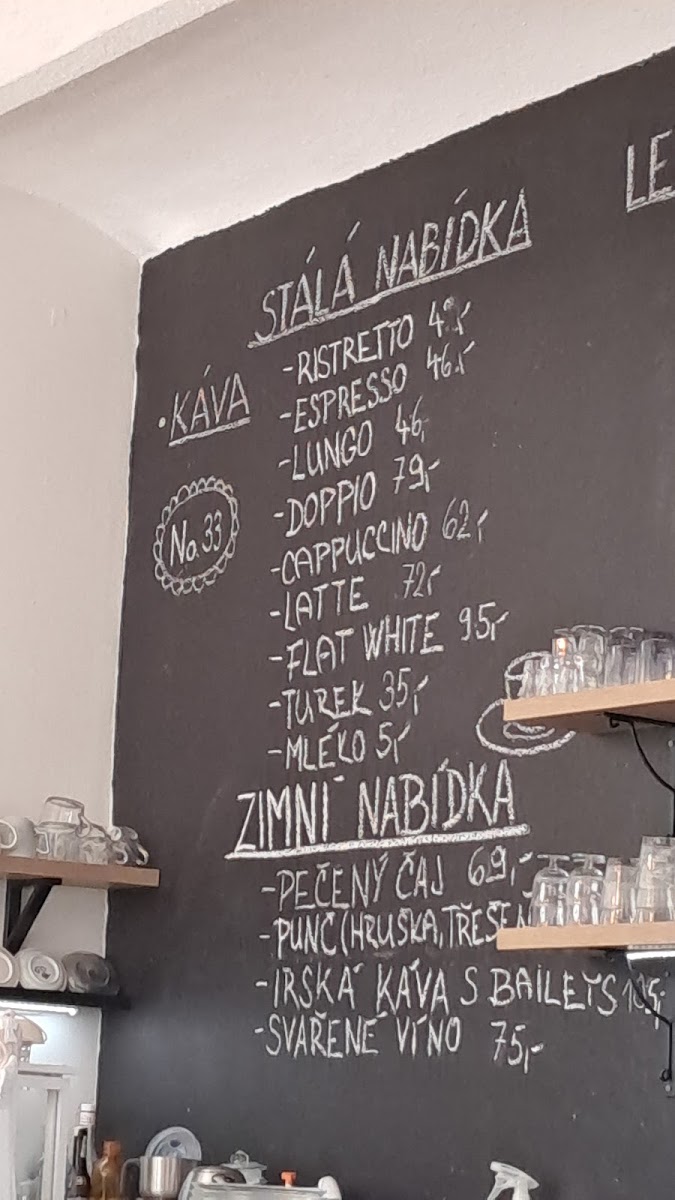 LE
STÁLÁ NABÍDKA
• KÁVA
No. 33
-RISTRETTO
-ESPRESSO 46,-
-LUNGO 46,
-DOPPIO 79,-
-CAPPUCCINO 62,-
-LATTE 72,-
-FLAT WHITE 95,-
-TUREK 35,-
-MLÉKO 5,-
ZIMNÍ NABÍDKA
-PEČENÝ ČAJ 69,-
-PUNČ (HRUŠKA, TŘEŠE
-IRSKÁ KÁVA S BAILEYS
-SVAŘENÉ VÍNO 75,-